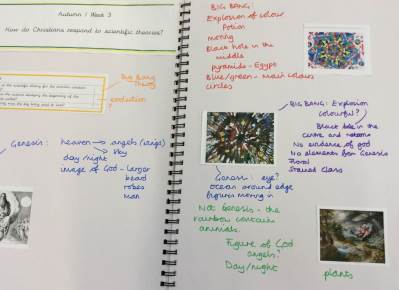 Autumn 1 Week 3
How do Christians respond to scientific theories?
Big Bang
Theory
evolution
Genesis: heaven → angels (wings)
sky
day/night
image of God - larger
beard
robes
man
BIG BANG:
Explosion of colour
Potion
moving
Black hole in the
middle
pyramids - Egypt
Blue/green - main colours
circles
BIG BANG: Explosion
colourful?
Black hole in the
centre and
No evidence of god
No elements from Genesis
Floral
Stained Glass
Genesis: eye?
ocean around edge
figures moving in
Not Genesis - the
rainbow contain
animals.
Figure of God
angels?
Day/night
plants